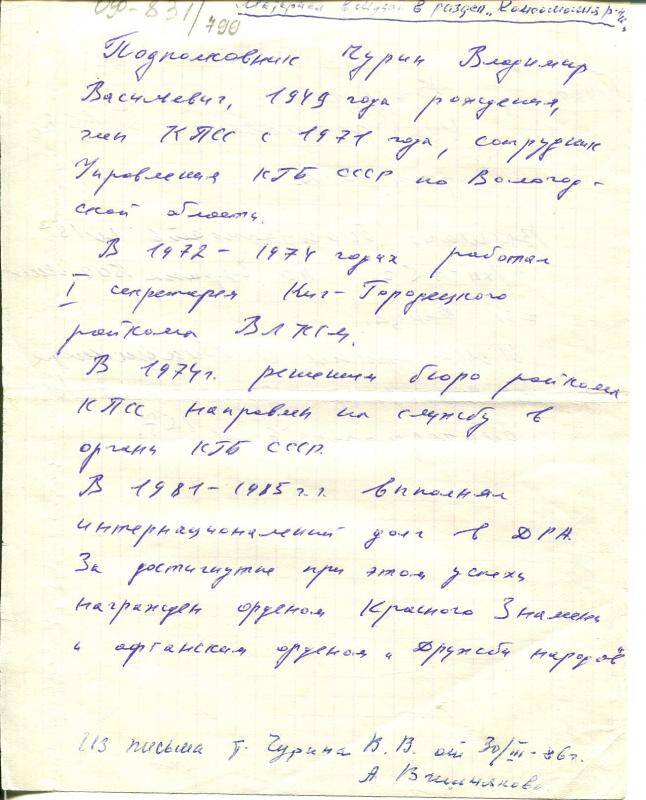 090-831/
799
Материал в музей в раздел „Комсомолия р-на"
Подполковник Чурин Владимир
Васильевич, 1949 года рождения,
член КПСС с 1971 года, сотрудник
Управления КГБ СССР по Вологод-
ской области.
В 1972-1974 годах работал
I секретарем Кич-Городецкого
райкома ВЛКСМ.
В 1974г. решением бюро райкома
КПСС направлен на службу в
органы КГБ СССР.
В 1981-1985 г.г. выполнял
интернациональный долг в ДРА.
За достигнутые при этом успехи
награжден орденом Красного Знамени
и афганским орденом „Дружбы народов"
Из письма т. Чурина В. В. от 30/III-86г.
А